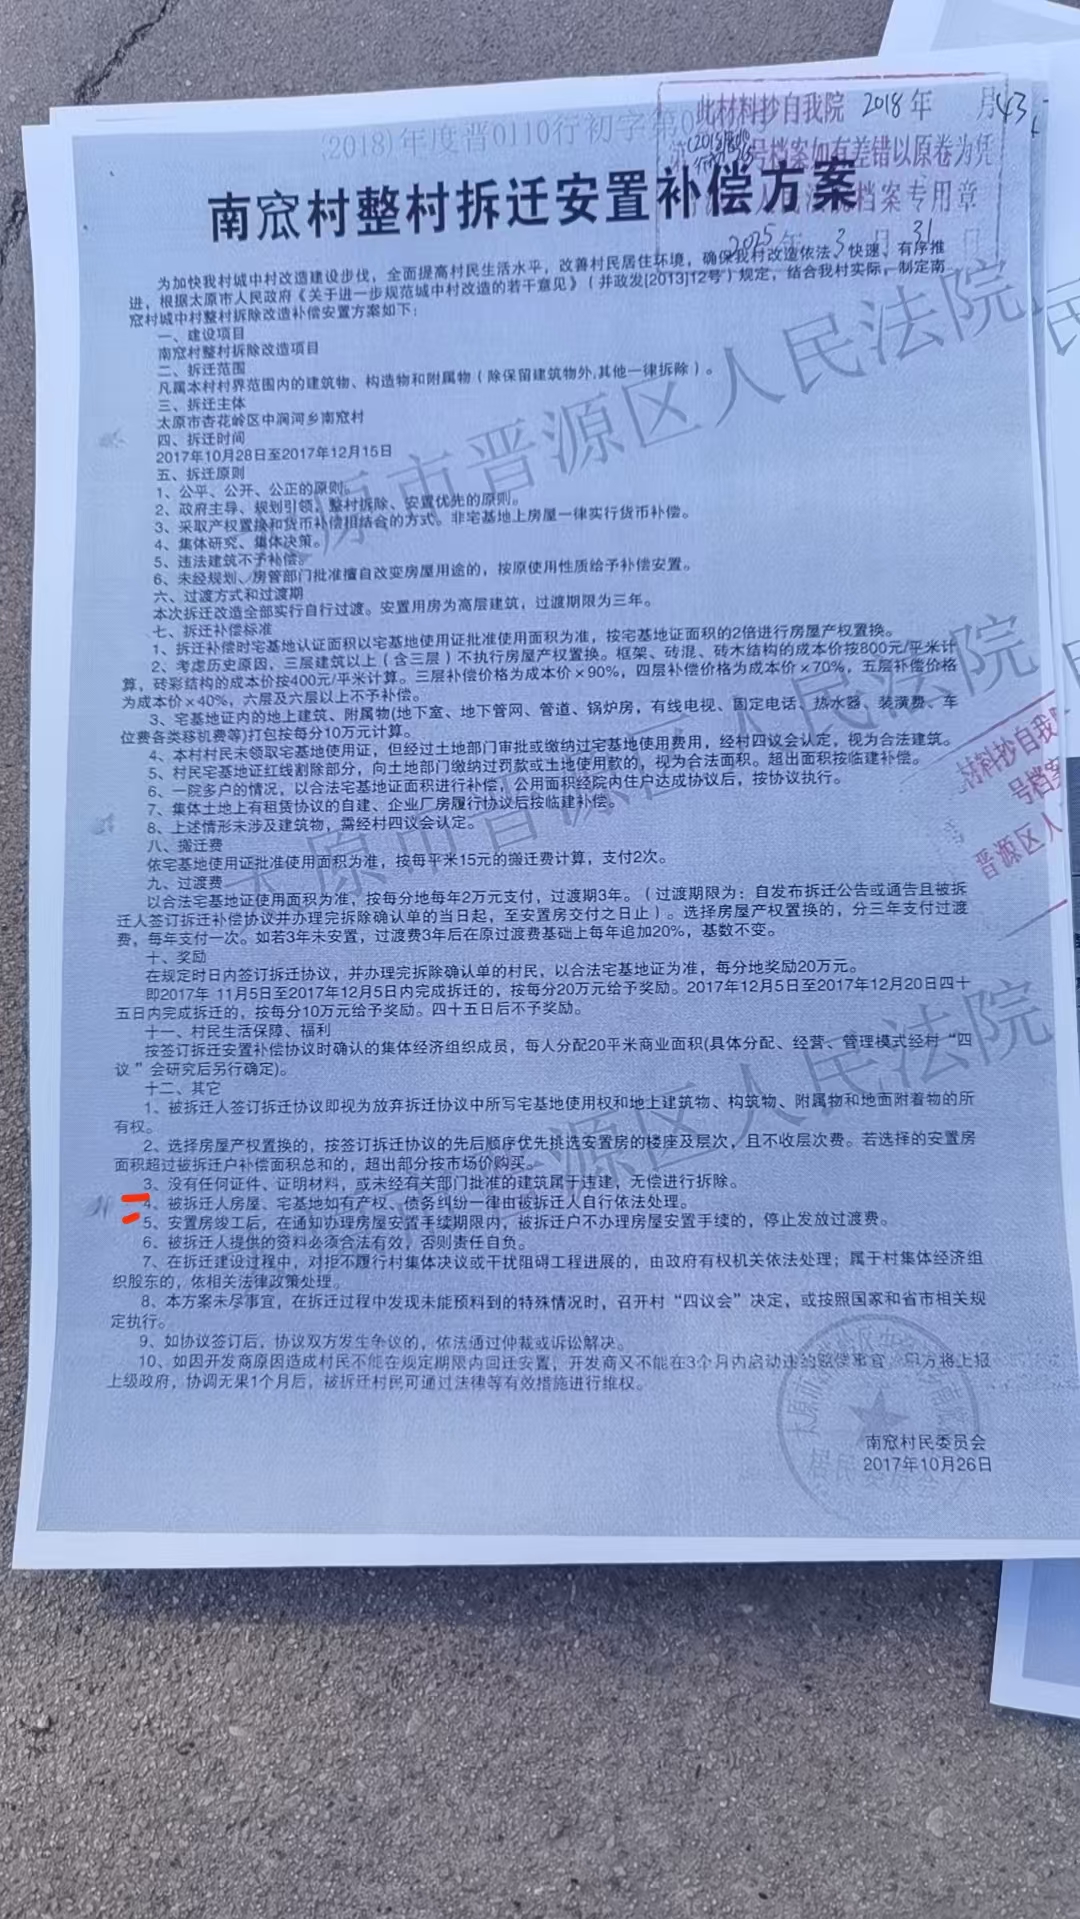 (2018)年度晋0110行初字第0
此材料抄自我院 2018年 月43
号档案如有差错以原卷为凭
人民法院档案专用章
2025年3月31日
南窊村整村拆迁安置补偿方案
为加快我村城中村改造建设步伐，全面提高村民生活水平，改善村民居住环境，确保我村改造依法、快速、有序推
进，根据太原市人民政府《关于进一步规范城中村改造的若干意见》（并政发[2013]12号）规定，结合我村实际，制定南
窊村城中村整村拆除改造补偿安置方案如下：
一、建设项目
南窊村整村拆除改造项目
二、拆迁范围
凡属本村村界范围内的建筑物、构造物和附属物（除保留建筑物外,其他一律拆除）。
三、拆迁主体
太原市杏花岭区中涧河乡南窊村
四、拆迁时间
2017年10月28日至2017年12月15日
五、拆迁原则
1、公平、公开、公正的原则。
2、政府主导、规划引领，整村拆除、安置优先的原则。
3、采取产权置换和货币补偿相结合的方式。非宅基地上房屋一律实行货币补偿。
4、集体研究、集体决策。
5、违法建筑不予补偿。
6、未经规划、房管部门批准擅自改变房屋用途的，按原使用性质给予补偿安置。
六、过渡方式和过渡期
本次拆迁改造全部实行自行过渡。安置用房为高层建筑，过渡期限为三年。
七、拆迁补偿标准
1、拆迁补偿时宅基地认证面积以宅基地使用证批准使用面积为准，按宅基地证面积的2倍进行房屋产权置换。
2、考虑历史原因，三层建筑以上（含三层）不执行房屋产权置换。框架、砖混、砖木结构的成本价按800元/平米计
算，砖彩结构的成本价按400元/平米计算。三层补偿价格为成本价×90%，四层补偿价格为成本价×70%，五层补偿价格
为成本价×40%，六层及六层以上不予补偿。
3、宅基地证内的地上建筑、附属物(地下室、地下管网、管道、锅炉房，有线电视、固定电话、热水器、装潢费、车
位费各类移机费等)打包按每分10万元计算。
4、本村村民未领取宅基地使用证，但经过土地部门审批或缴纳过宅基地使用费用，经村四议会认定，视为合法建筑。
5、村民宅基地证红线割除部分，向土地部门缴纳过罚款或土地使用款的，视为合法面积。超出面积按临建补偿。
6、一院多户的情况，以合法宅基地证面积进行补偿，公用面积经院内住户达成协议后，按协议执行。
7、集体土地上有租赁协议的自建、企业厂房履行协议后按临建补偿。
8、上述情形未涉及建筑物，需经村四议会认定。
八、搬迁费
依宅基地使用证批准使用面积为准，按每平米15元的搬迁费计算，支付2次。
九、过渡费
以合法宅基地证使用面积为准，按每分地每年2万元支付，过渡期3年。（过渡期限为：自发布拆迁公告或通告且被拆
迁人签订拆迁补偿协议并办理完拆除确认单的当日起，至安置房交付之日止）。选择房屋产权置换的，分三年支付过渡
费，每年支付一次。如若3年未安置，过渡费3年后在原过渡费基础上每年追加20%，基数不变。
十、奖励
在规定时日内签订拆迁协议，并办理完拆除确认单的村民，以合法宅基地证为准，每分地奖励20万元。
即2017年 11月5日至2017年12月5日内完成拆迁的，按每分20万元给予奖励。2017年12月5日至2017年12月20日四十
五日内完成拆迁的，按每分10万元给予奖励。四十五日后不予奖励。
十一、村民生活保障、福利
按签订拆迁安置补偿协议时确认的集体经济组织成员，每人分配20平米商业面积(具体分配、经营、管理模式经村“四
议”会研究后另行确定)。
十二、其它
1、被拆迁人签订拆迁协议即视为放弃拆迁协议中所写宅基地使用权和地上建筑物、构筑物、附属物和地面附着物的所
有权。
2、选择房屋产权置换的，按签订拆迁协议的先后顺序优先挑选安置房的楼座及层次，且不收层次费。若选择的安置房
面积超过被拆迁户补偿面积总和的，超出部分按市场价购买。
3、没有任何证件、证明材料，或未经有关部门批准的建筑属于违建，无偿进行拆除。
4、被拆迁人房屋、宅基地如有产权、债务纠纷一律由被拆迁人自行依法处理。
5、安置房竣工后，在通知办理房屋安置手续期限内，被拆迁户不办理房屋安置手续的，停止发放过渡费。
6、被拆迁人提供的资料必须合法有效，否则责任自负。
7、在拆迁建设过程中，对拒不履行村集体决议或干扰阻碍工程进展的，由政府有权机关依法处理；属于村集体经济组
织股东的，依相关法律政策处理。
8、本方案未尽事宜，在拆迁过程中发现未能预料到的特殊情况时，召开村“四议会”决定，或按照国家和省市相关规
定执行。
9、如协议签订后，协议双方发生争议的，依法通过仲裁或诉讼解决。
10、如因开发商原因造成村民不能在规定期限内回迁安置，开发商又不能在3个月内启动违约赔偿事宜，甲方将上报
上级政府，协调无果1个月后，被拆迁村民可通过法律等有效措施进行维权。
南窊村民委员会
2017年10月26日
太原市晋源区人民法院
太原市晋源区人民法院
人民法院
材料抄自我院
号档案
晋源区人